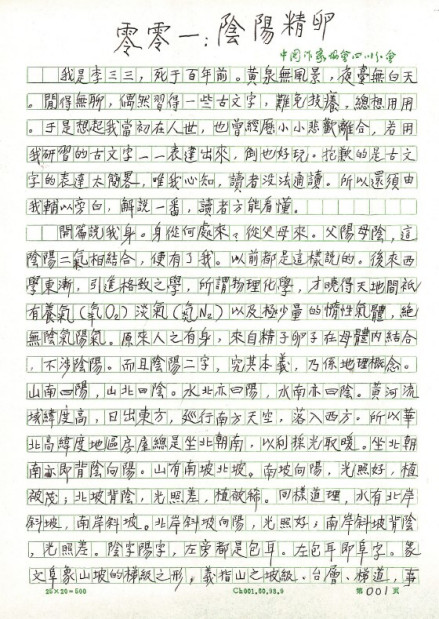 零零一：陰陽精卵
中国作家協會四川分會
我是李三三，死于百年前。黄泉無風景，夜臺無白天
。閒得無聊，偶然習得一些古文字，難免技癢，總想用用
。于是想起我當初在人世，也曾經歷小小悲歡離合，若用
我研習的古文字一一表達出來，倒也好玩。抱歉的是古文
字的表達太簡畧，唯我心知，讀者没法通讀。所以還須由
我輔以旁白，解說一番，讀者方能看懂。
開篇說我身。身從何處來，從父母來。父陽母陰，這
陰陽二氣相結合，便有了我。以前都是這樣說的。後來西
學東漸，引進格致之學，所謂物理化學，才曉得天地間祇
有養氣（氧O₂）淡氣（氮N₂）以及極少量的惰性氣體，絶
無陰氣陽氣。原來人之有身，來自精子卵子在母體内結合
，不涉陰陽。而且陰陽二字，究其本義，乃係地理概念。
山南曰陽，山北曰陰。水北亦曰陽，水南亦曰陰。黄河流
域緯度高，日出東方，巡行南方天空，落入西方。所以華
北高緯度地區房屋總是坐北朝南，以利採光取暖。坐北朝
南亦即背陰向陽。山有南坡北坡。南坡向陽，光照好，植
被茂；北坡背陰，光照差，植被稀。同樣道理，水有北岸
斜坡，南岸斜坡。北岸斜坡向陽，光照好；南岸斜坡背陰
，光照差。陰字陽字，左旁都是包耳。左包耳即阜字。象
文阜象山坡的梯級之形，義指山之坡級、台層、梯道，事
25×20=500 Ch001.80.98.9 第001页